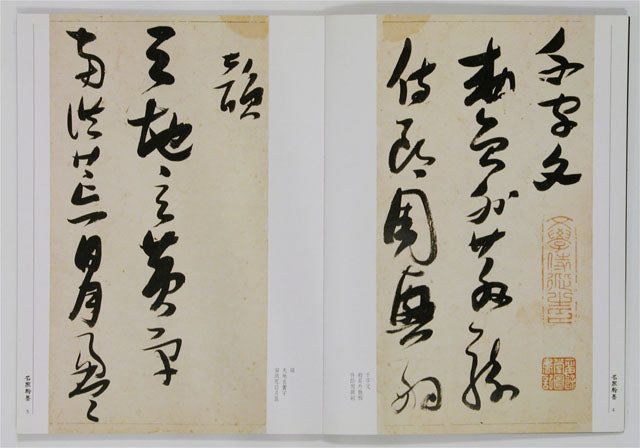 千字文
敕員外散騎
侍郎周興嗣
文學侍從之臣
千字文
敕員外散騎
侍郎周興嗣
名家翰墨
4
韻
天地玄黃宇
宙洪荒日月盈
韻
天地玄黃宇
宙洪荒日月盈
名家翰墨
5